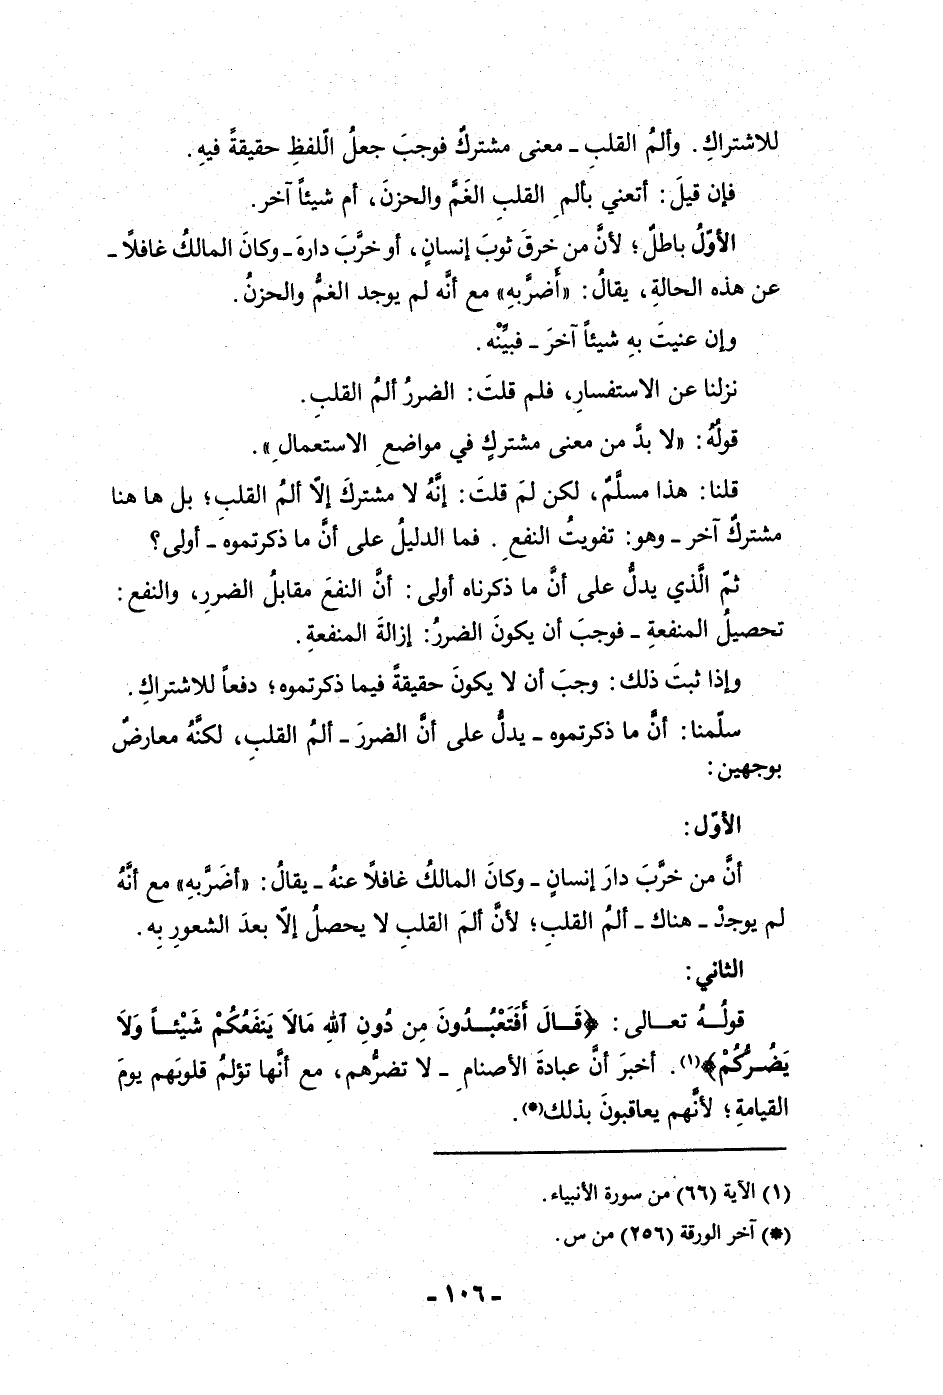 للاشتراكِ. وألمُ القلبِ ـ معنى مشتركٌ فوجبَ جعلُ الّلفظِ حقيقةً فيهِ.
فإن قيلَ: أتعني بألمِ القلبِ الغَمَّ والحزنَ، أم شيئاً آخر.
الأوّلُ باطلٌ؛ لأنَّ من خرقَ ثوبَ إنسانٍ، أو خرَّبَ دارهَ ـ وكانَ المالكُ غافلًا ـ
عن هذه الحالةِ، يقالُ: «أَضرَّبهِ» مع أنَّه لم يوجد الغمُّ والحزنُ.
وإن عنيتَ بهِ شيئاً آخرَ ـ فبيِّنْه.
نزلنا عن الاستفسارِ، فلم قلتَ: الضررُ ألمُ القلبِ.
قولُهُ: «لا بدَّ من معنى مشتركٍ في مواضعِ الاستعمالِ».
قلنا: هذا مسلَّمٌ، لكن لمَ قلتَ: إنَّهُ لا مشتركَ إلّا ألمُ القلبِ؛ بل ها هنا
مشتركٌ آخر ـ وهو: تفويتُ النفعِ. فما الدليلُ على أنَّ ما ذكرتموه ـ أولى؟
ثمّ الَّذي يدلُّ على أنَّ ما ذكرناه أولى: أنَّ النفعَ مقابلُ الضررِ، والنفع:
تحصيلُ المنفعةِ ـ فوجبَ أن يكونَ الضررُ: إزالةَ المنفعةِ.
وإذا ثبتَ ذلك: وجبَ أن لا يكونَ حقيقةً فيما ذكرتموه؛ دفعاً للاشتراكِ.
سلّمنا: أنَّ ما ذكرتموه ـ يدلُّ على أنَّ الضررَ ـ ألمُ القلبِ، لكنَّهُ معارضٌ
بوجهين:
الأوّل:
أنَّ من خرَّبَ دارَ إنسانٍ ـ وكانَ المالكُ غافلًا عنهُ ـ يقالُ: «أضَرَّبهِ» مع أنَّهُ
لم يوجدْ ـ هناك ـ ألمُ القلبِ؛ لأنَّ ألمَ القلبِ لا يحصلُ إلّا بعدَ الشعورِ بِهِ.
الثاني:
قولُهُ تعالى: ﴿قَالَ أَفَتَعْبُدُونَ مِن دُونِ اللهِ مَالَا يَنفَعُكُمْ شَيْئاً وَلَا
يَضُرُّكُمْ﴾(١). أخبرَ أنَّ عبادةَ الأصنامِ ـ لا تضرُّهم، مع أنَّها تؤلمُ قلوبَهم يومَ
القيامةِ؛ لأنَّهم يعاقبونَ بذلك(*).
(١) الآية (٦٦) من سورة الأنبياء.
(*) آخر الورقة (٢٥٦) من س.
ـ ١٠٦ ـ